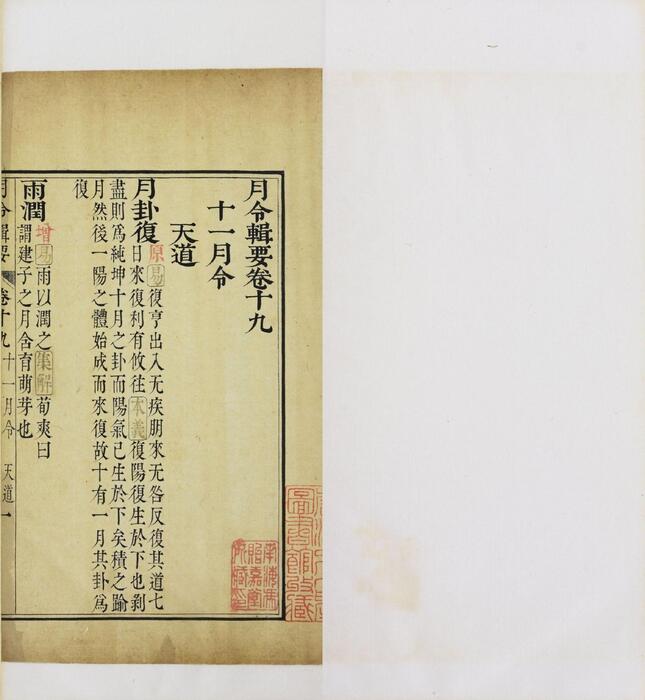 月令輯要卷十九
十一月令
天道
月卦復原易復亨出入无疾朋來无咎反復其道七
日來復利有攸往本義復陽復生於下也剥
盡則爲純坤十月之卦而陽氣已生於下矣積之踰
月然後一陽之體始成而來復故十有一月其卦爲
復
雨潤增易雨以潤之集解荀爽曰
謂建子之月含育萌芽也
月令輯要 卷十九 十一月令 天道 一
圖書館收藏